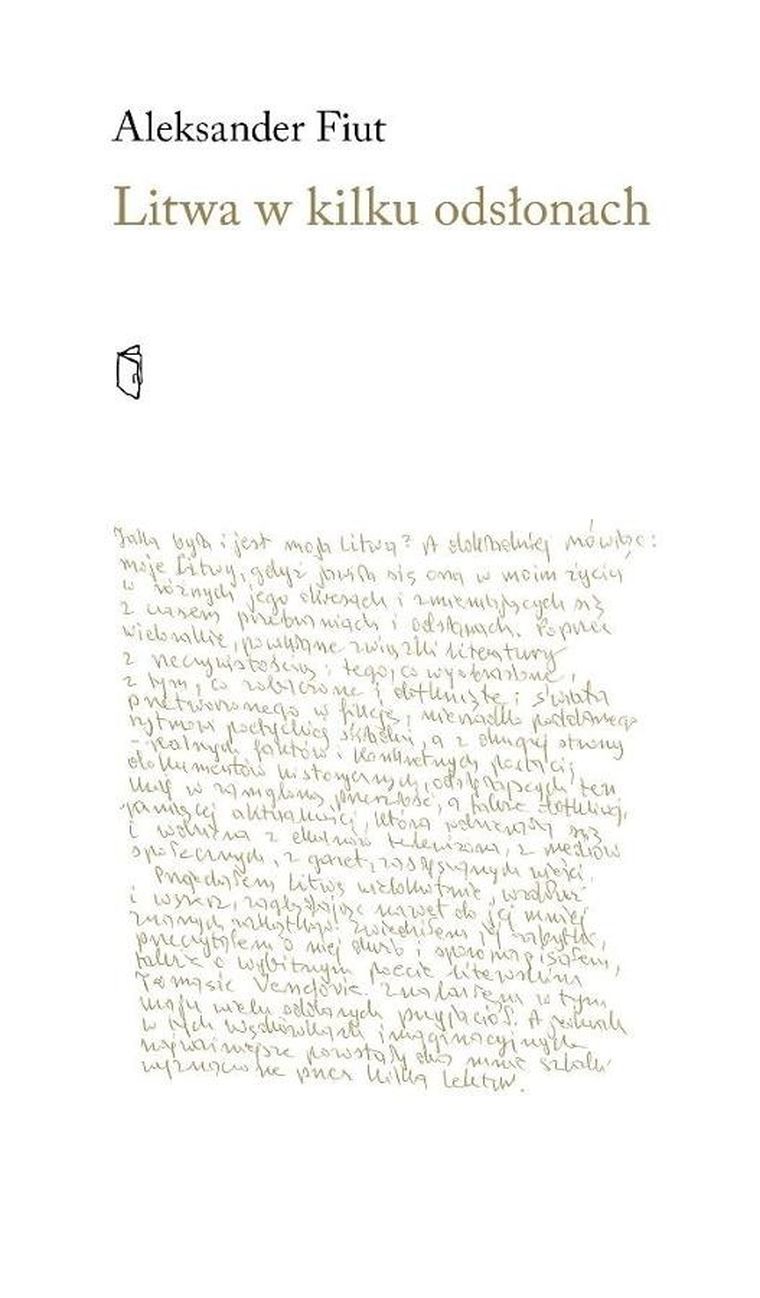 Aleksander Fiut
Litwa w kilku odsłonach
Jaka była i jest moja Litwa? A dokładniej mówiąc:
moje Litwy, gdyż jawiła się ona w moim życiu
w różnych jego okresach i zmieniających się
z czasem przebraniach i odsłonach. Poprzez
wielorakie, powikłane związki literatury
z rzeczywistością i tego, co wyobrażone,
z tym, co zobaczone i dotknięte; świata
przetworzonego w fikcję, nierzadko poddanego
rytmom poetyckiej, a z drugiej strony
realnych faktów i konkretnych postaci,
dokumentów historycznych, odsłaniających ten
kraj w zamgloną przeszłość, a także
aktualności, która
i z ekranów telewizora, z mediów
społecznych, z gazet, zasłyszanych wieści.
Przejechałem Litwę wielokrotnie, wzdłuż
i wszerz, zaglądając nawet do jej mniej
znanych zakątków. Zwiedziłem jej zabytki,
przeczytałem o niej dużo i sporo napisałem,
także o wybitnym poecie litewskim
Tomasie Venclovie. Znalazłem w tym
kraju wielu oddanych przyjaciół. A jednak
w tych wędrówkach imaginacyjnych
najważniejsze pozostały dla mnie szlaki
wyznaczone przez kilka lektur.